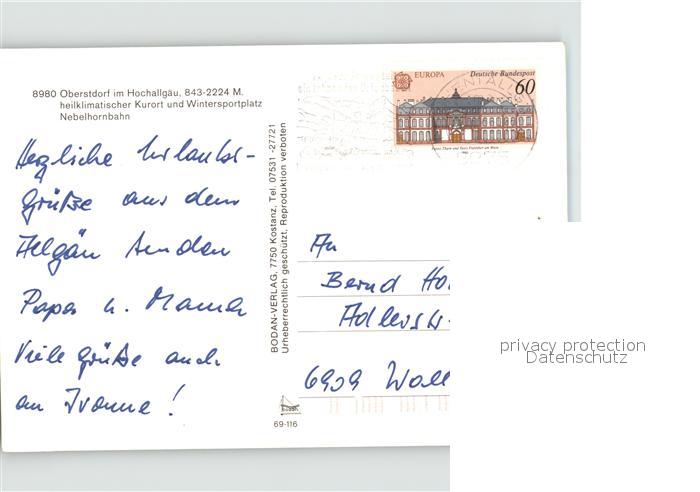 8980 Oberstdorf im Hochallgäu, 843-2224 M.
heilklimatischer Kurort und Wintersportplatz
Nebelhornbahn
EUROPA
Deutsche Bundespost
60
Palais Thurn und Taxis Frankfurt am Main
Herzliche Urlaubs-
grüße aus dem
Allgäu senden
Papa u. Mama
Viele Grüße auch
an Ivonne!
BODAN-VERLAG, 7750 Kostanz, Tel. 07531-27721
Urheberrechtlich geschützt, Reproduktion verboten
69-116
An
Bernd
6909
privacy protection
Datenschutz